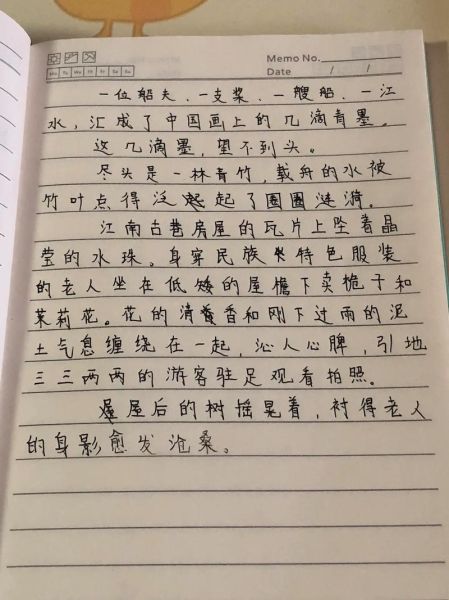 Memo No.
Mo Tu We Th Fr Sa Su
Date / /
一位船夫、一支桨、一艘船、一江
水，汇成了中国画上的几滴青墨。
这几滴墨，望不到头。
尽头是一林青竹，载舟的水被
竹叶点得泛起了圈圈涟漪。
江南古巷房屋的瓦片上坠着晶
莹的水珠。身穿民族特色服装
的老人坐在低矮的屋檐下卖栀子和
茉莉花。花的清香和刚下过雨的泥
土气息缠绕在一起，沁人心脾，引地
三三两两的游客驻足观看拍照。
屋后的树摇晃着，衬得老人
的身影愈发沧桑。